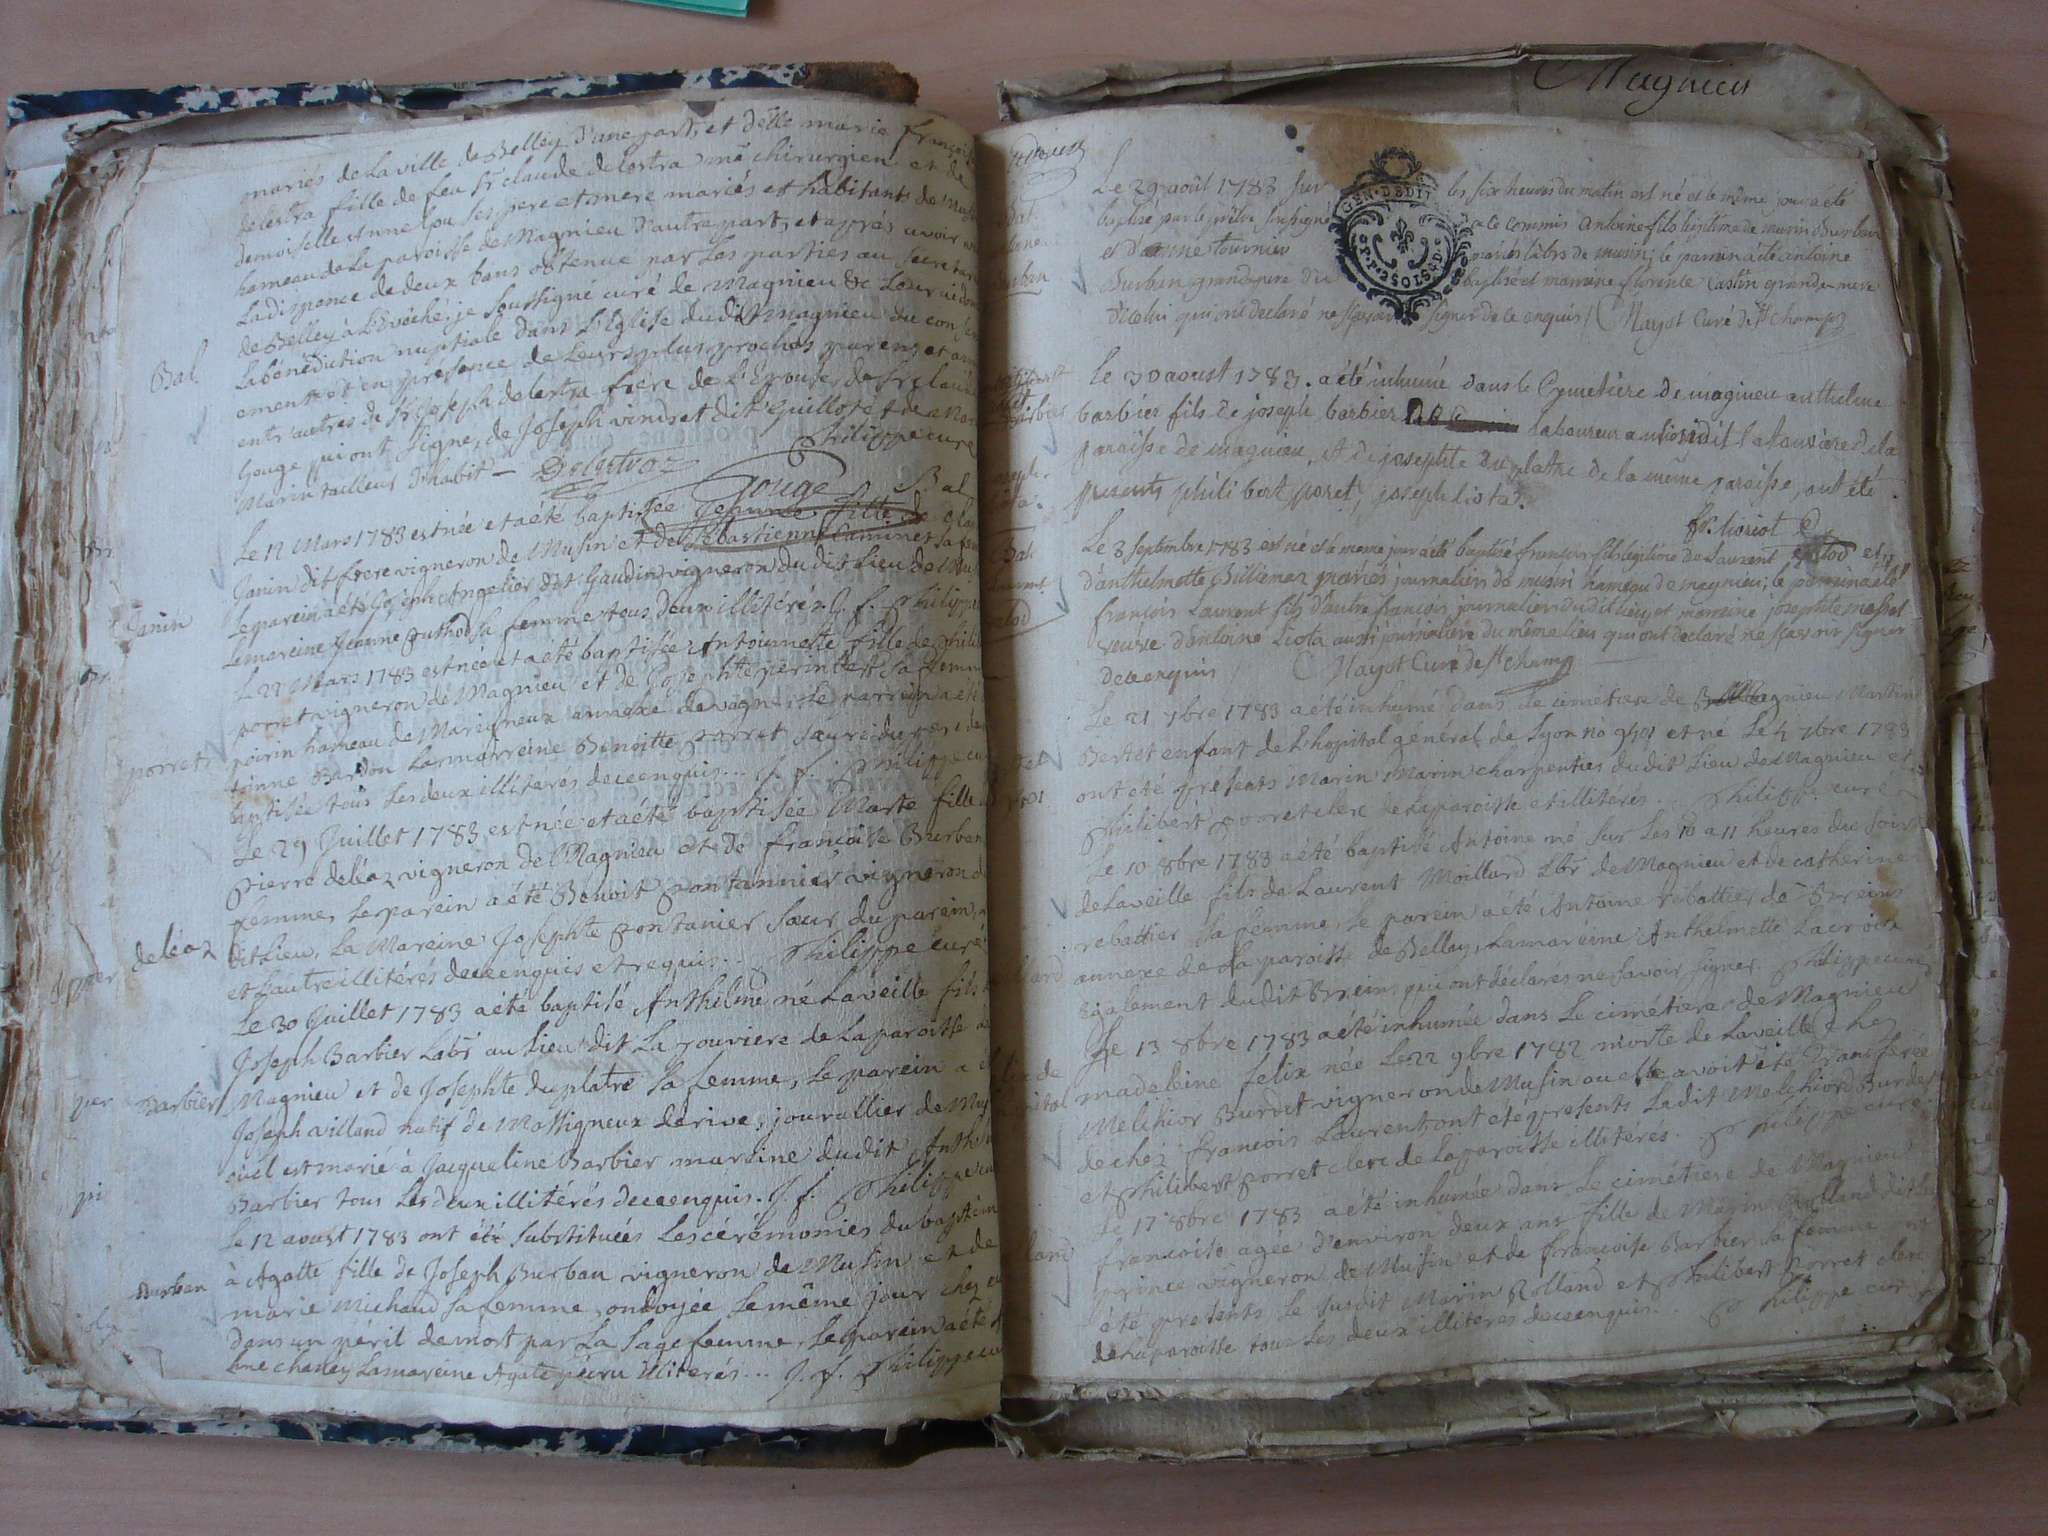 mariés de la ville de Belley d'une part, et delle marie françoise
delestra fille de feu Sr claude delestra me chirurgien et de
demoiselle anne ses pere et mere mariés et habitants de
hameau de la paroisse de Magnieu d'autre part, et apprés avoir
la dispence de deux bans obtenue par les parties au secretariat
de Belley à L'Evéché, je soussigné curé de Magnieu &c leur ai donné
la bénédiction nuptiale dans l'Eglise dudit magnieu du
ement et en présence de leurs plus proches parens et amis
entr'autres de Sr Joseph delestra frére de l'Epouse, de Sr claude
Gouge qui ont signé, de Joseph vindret dit Guillot et de
Marin tailleur d'habit — Philippe curé
Delestraz Gouge
Bal.
Bal
Le 12 Mars 1783 est née et a été baptisée Jeanne fille de
Janin dit frere vigneron de Musin et de Sebastienne Caminet sa femme
Le parein a été Joseph Angelier dit Gaudin vigneron du dit lieu de
La mareine Jeanne Juthod sa femme tous deux illitérés. J. f. Philippe
Janin
Le 22 Mars 1783 est née et a été baptisée Antoinette fille de
porret vigneron de Magnieu et de Josephte perinter sa femme
poirin hameau de Marignieux annexe de le parrain a été
toinne Bardon La marreine Benoitte porret
baptisée tous les deux illiterés de ce enquis... J. f. Philippe cu
porret
Le 29 Juillet 1783 est née et a été baptisée Marte fille
pierre deléaz vigneron de Magnieu et de françoise Burban
femme, Le parein a été Benoit pontannier vigneron d
dit Lieu, La Mareine Josephte pontanier sœur du parein,
et l'autre illitérés de ce enquis et requis... Philippe curé
deléaz
Le 30 Juillet 1783 a été baptisé Anthelme né La veille fils
Joseph Barbier Labr au Lieu dit La rouviere de La paroisse
Magnieu et de Josephte duplatre sa femme, Le parein a
Joseph villand natif de Massigneux de rive, journallier de
qu'il est marié à Jacqueline Barbier mareine dudit Anth
Barbier tous Les deux illitérés de ce enquis. J. f. Philippe cu
Barbier
Le 12 aoust 1783 ont été substituées Les cérémonies du baptem
à Agatte fille de Joseph Burban vigneron de Musin et de
marie Michaud sa femme, ondoyée Le même jour chez
dans un péril de mort par La Sage femme, Le parein a été
La mareine Agate illiterés... J. f. Philippe cu
Burban
Magnieu
Le 29 août 1783 sur les six heures du matin est né et le même jour a été
baptisé par le prêtre soussigné a ce commis antoine fils légitime de marin Burban
et d'anne tournier mariés labrs de musin; le parrain a été antoine
Burban grandpere du baptisé et marraine florente castin grande mere
d'icelui qui ont declaré ne sçavoir signer de ce enquis / Mayot Curé de St champ
le 30 aoust 1783. a été inhumé dans le Cymetiere de magnieu anthelme
barbier fils de joseph barbier laboureur au lieu dit la rouviere de la
paroisse de magnieu, et de josephte duplatre de la même paroisse, ont été
presents philibert poret, joseph liota.
fr. Moriot
Le 8 septembre 1783 est né et le même jour a été baptisé françois fils légitime de Laurent et
d'anthelmette Billiemaz mariés journaliers de musin hameau de magnieu; le parrain a été
françois Laurent fils d'autre françois journalier dudit lieu, et marraine josephte
veuve d'antoine Liota aussi journaliere du même lieu qui ont declaré ne sçavoir signer
de ce enquis Mayot Curé de St champ
Le 21 7bre 1783 a été inhumé dans Le cimétiere de Magnieu Martin
Bertet enfant de L'hopital général de Lyon no et né Le 4 7bre 1783
ont été présents Marin Marin charpentier du dit Lieu de Magnieu et
Philibert porret clerc de La paroisse et illiterés... Philippe curé
Le 10 8bre 1783 a été baptisé Antoine né sur Les 10 a 11 heures du soir
de La veille fils de Laurent Moillard Lbr de Magnieu et de catherine
rebattier sa femme, Le parein a été Antoine rebattier de Brein
annexe de La paroisse de Belley, La mareine Anthelmette Lacroix
également dudit Brein, qui ont déclarés ne savoir signer. Philippe curé
Le 13 8bre 1783 a été inhumée dans Le cimétiere de Magnieu
madeleine felix née Le 22 9bre 1782 morte de La veille chez
Melchior Burdet vigneron de Musin ou elle avoit été transférée
de chez francois Laurent, ont été présents Ledit Melchiord Burdet
et Philibert porret clerc de La paroisse illitérés. Philippe curé
Le 17 8bre 1783 a été inhumée dans Le cimétiere de Magnieu
francoise agée d'environ deux ans fille de Marin Rolland dit Le
prince vigneron de Musin et de francoise Barbier sa femme, ont
été présents Le susdit Marin Rolland et Philibert porret clerc
de La paroisse tous Les deux illiteres de ce enquis.. Philippe curé